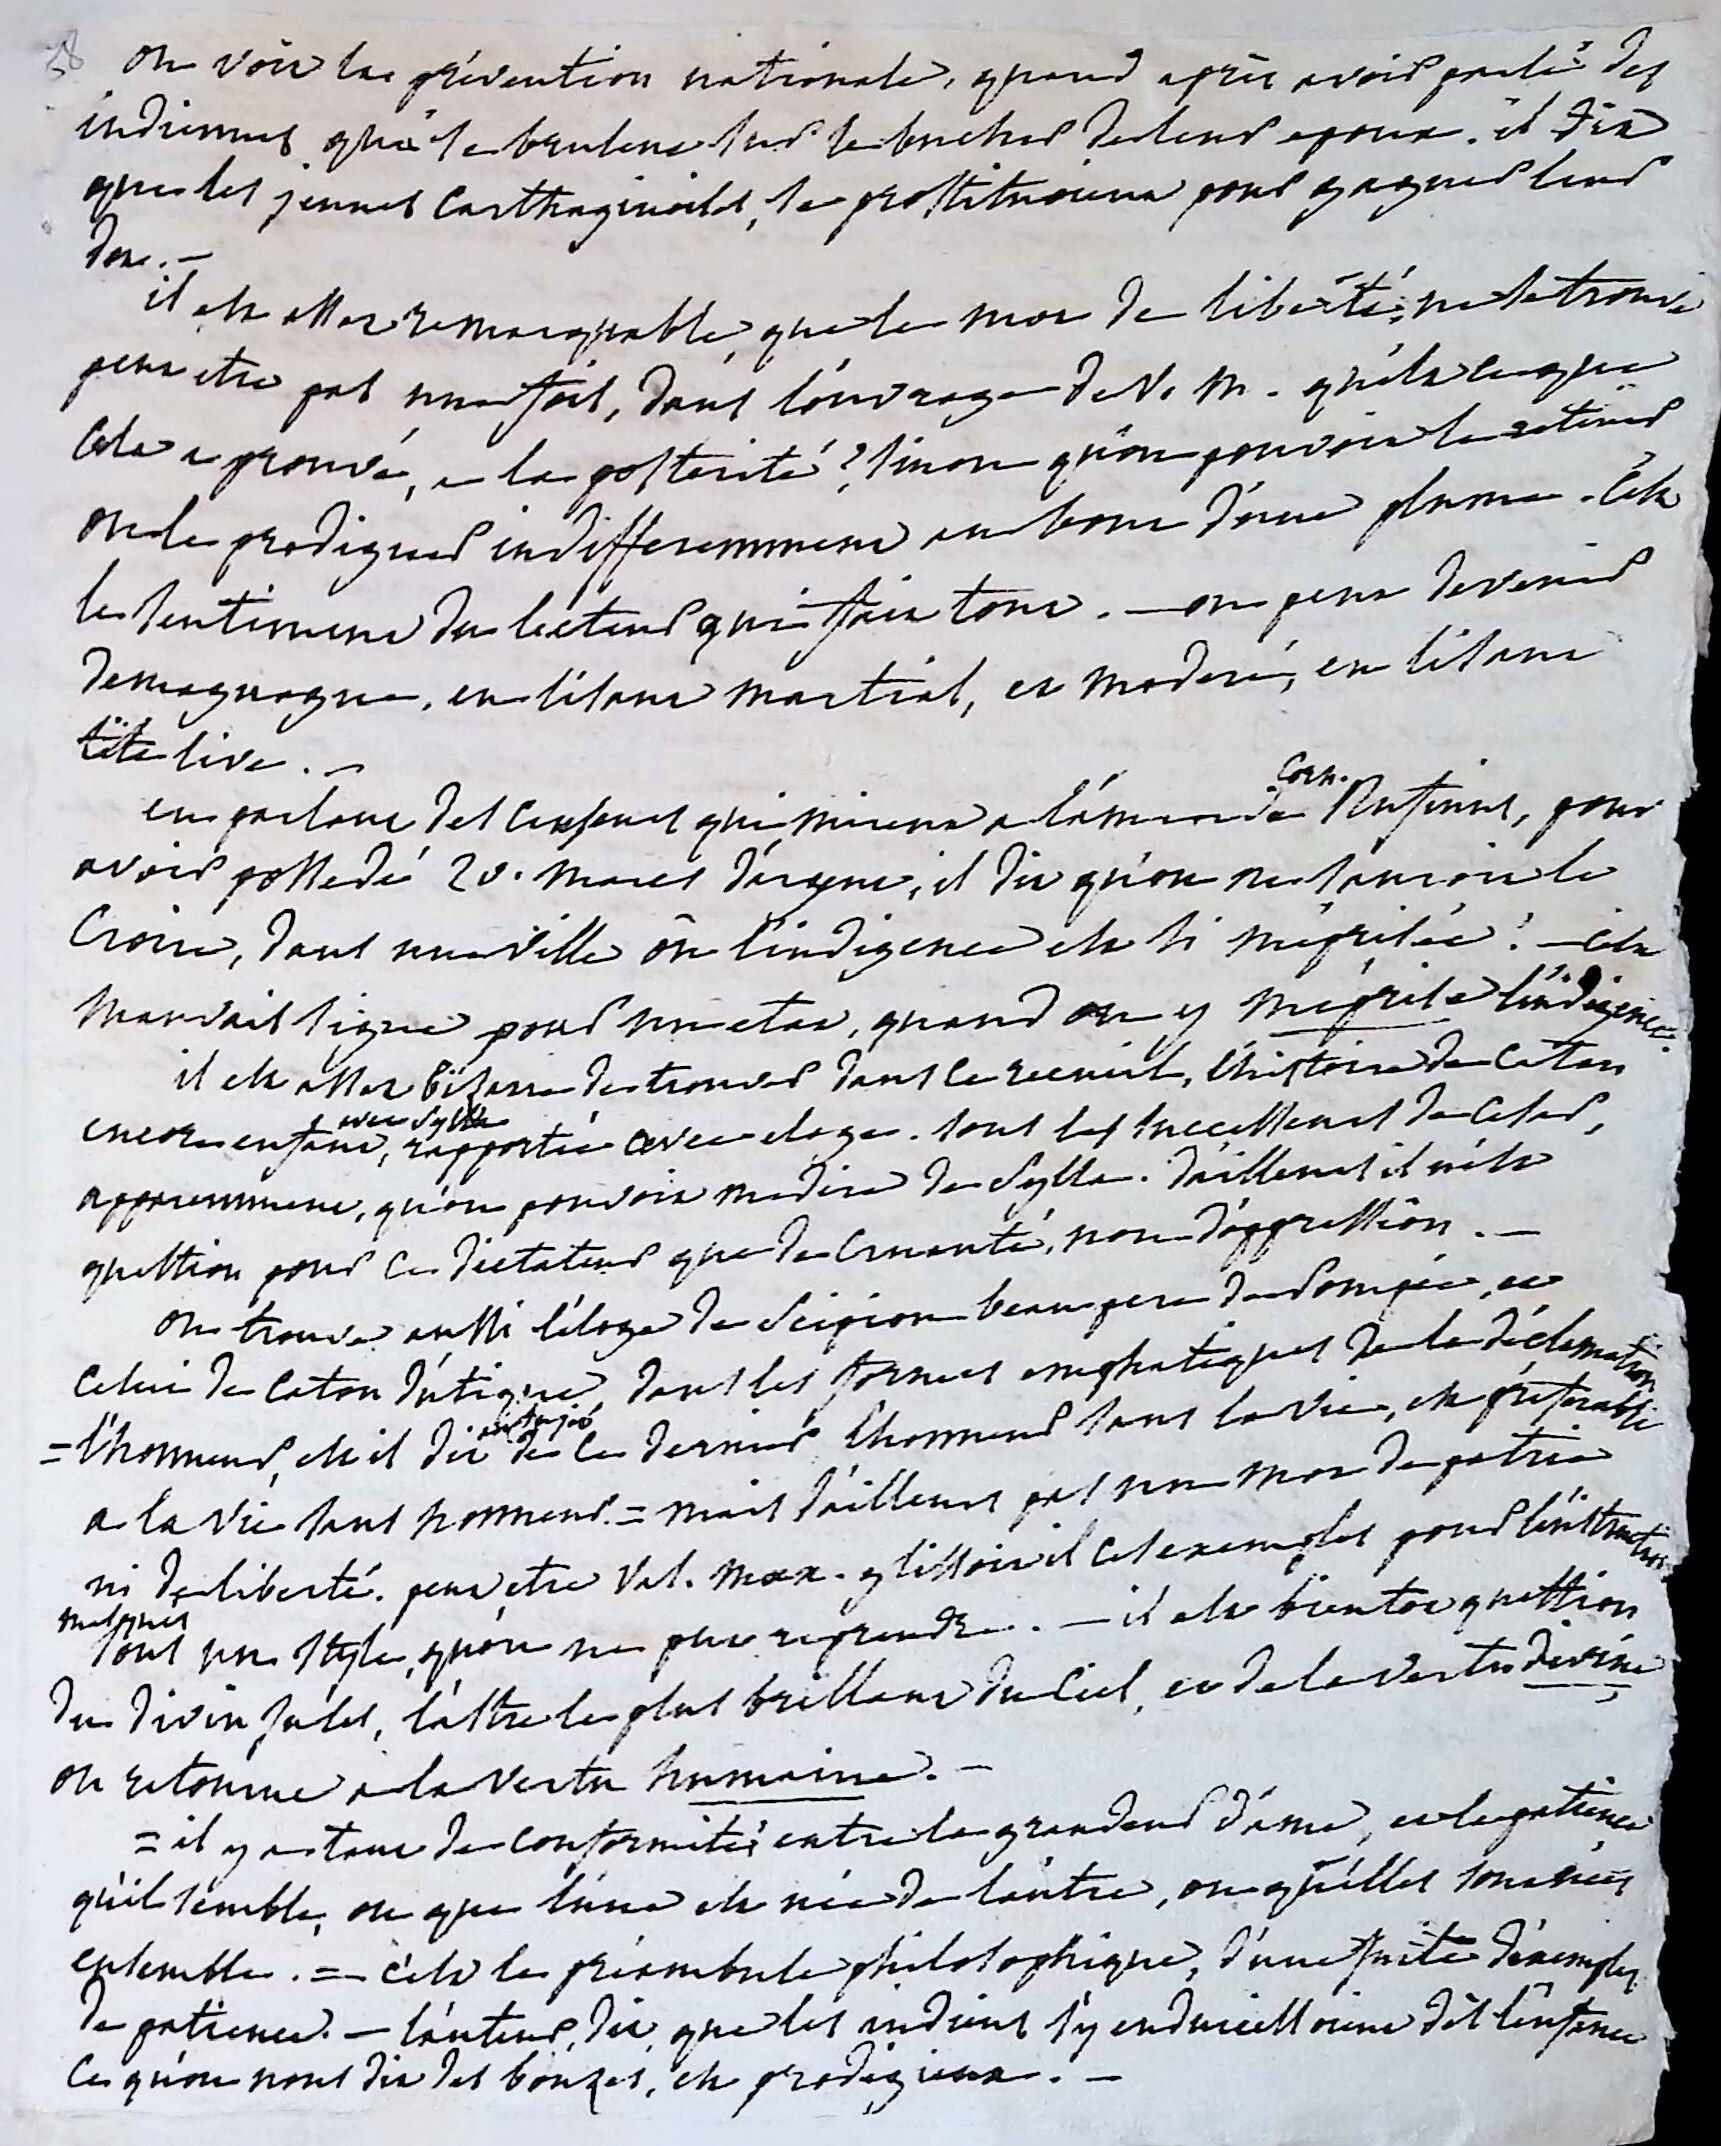 38
on voit la prévention nationale, quand après avoir parlé des
indiennes qui se brulent sur le bucher de leur epoux. il dit
que les jeunes Carthaginoises, se prostituoient pour gagner leur
dot. —
il est assez remarquable que le mot de liberté, ne se trouve
peut etre pas une fois, dans l'ouvrage de V. M. qu'est ce que
cela a prouvé, a la posterité? sinon qu'on pouvoit le retenir
ou le prodiguer indifferemment au bout d'une plume. c'est
le sentiment du lecteur qui fait tout. — on peut devenir
demagnogue, en lisant martial, et moderé, en lisant
tite live. —
en parlant des censeurs qui mirent a l'amende Corn. Rufinus, pour
avoir possedé 20. marcs d'argent, il dit qu'on ne sauroit le
croire, dans une ville ou l'indigence est si méprisée! — c'est
mauvais signe pour un etat, quand on y méprise l'indigence.
il est assez bizarre de trouver dans ce recueil, l'histoire de Caton
encore enfant, avec Sylla rapportée avec eloge. sous les successeurs de Cesar,
apparemment, qu'on pouvoit medire de Sylla. d'ailleurs il n'est
question pour ce dictateur que de cruauté, non d'oppression. —
on trouve aussi l'éloge de Scipion beaupere de Pompée, et
celui de Caton d'utique, dans les formes emphatiques de la déclamation
= l'honneur, est il dit au sujet de ce dernier l'honneur sans la vie, est préferable
a la vie sans honneur. = mais d'ailleurs pas un mot de patrie
ni de liberté. peut etre Val. max. glissoit il ces exemples pour l'instruction
sous un style, qu'on ne put reprendre. — il est bientot question
du divin Jules, l'astre le plus brillant du Ciel, et de la vertu divine
on retourne a la vertu humaine. —
= il y a tant de conformité entre la grandeur d'ame, et la patience
qu'il semble, ou que l'une est née de l'autre, ou qu'elles sont nées
ensemble. = c'est le préambule philosophique, d'une suite d'exemples
de patience. — l'auteur, dit, que les indiens s'y endurcissoient dès l'enfance
ce qu'on nous dit des bonzes, est prodigieux. —